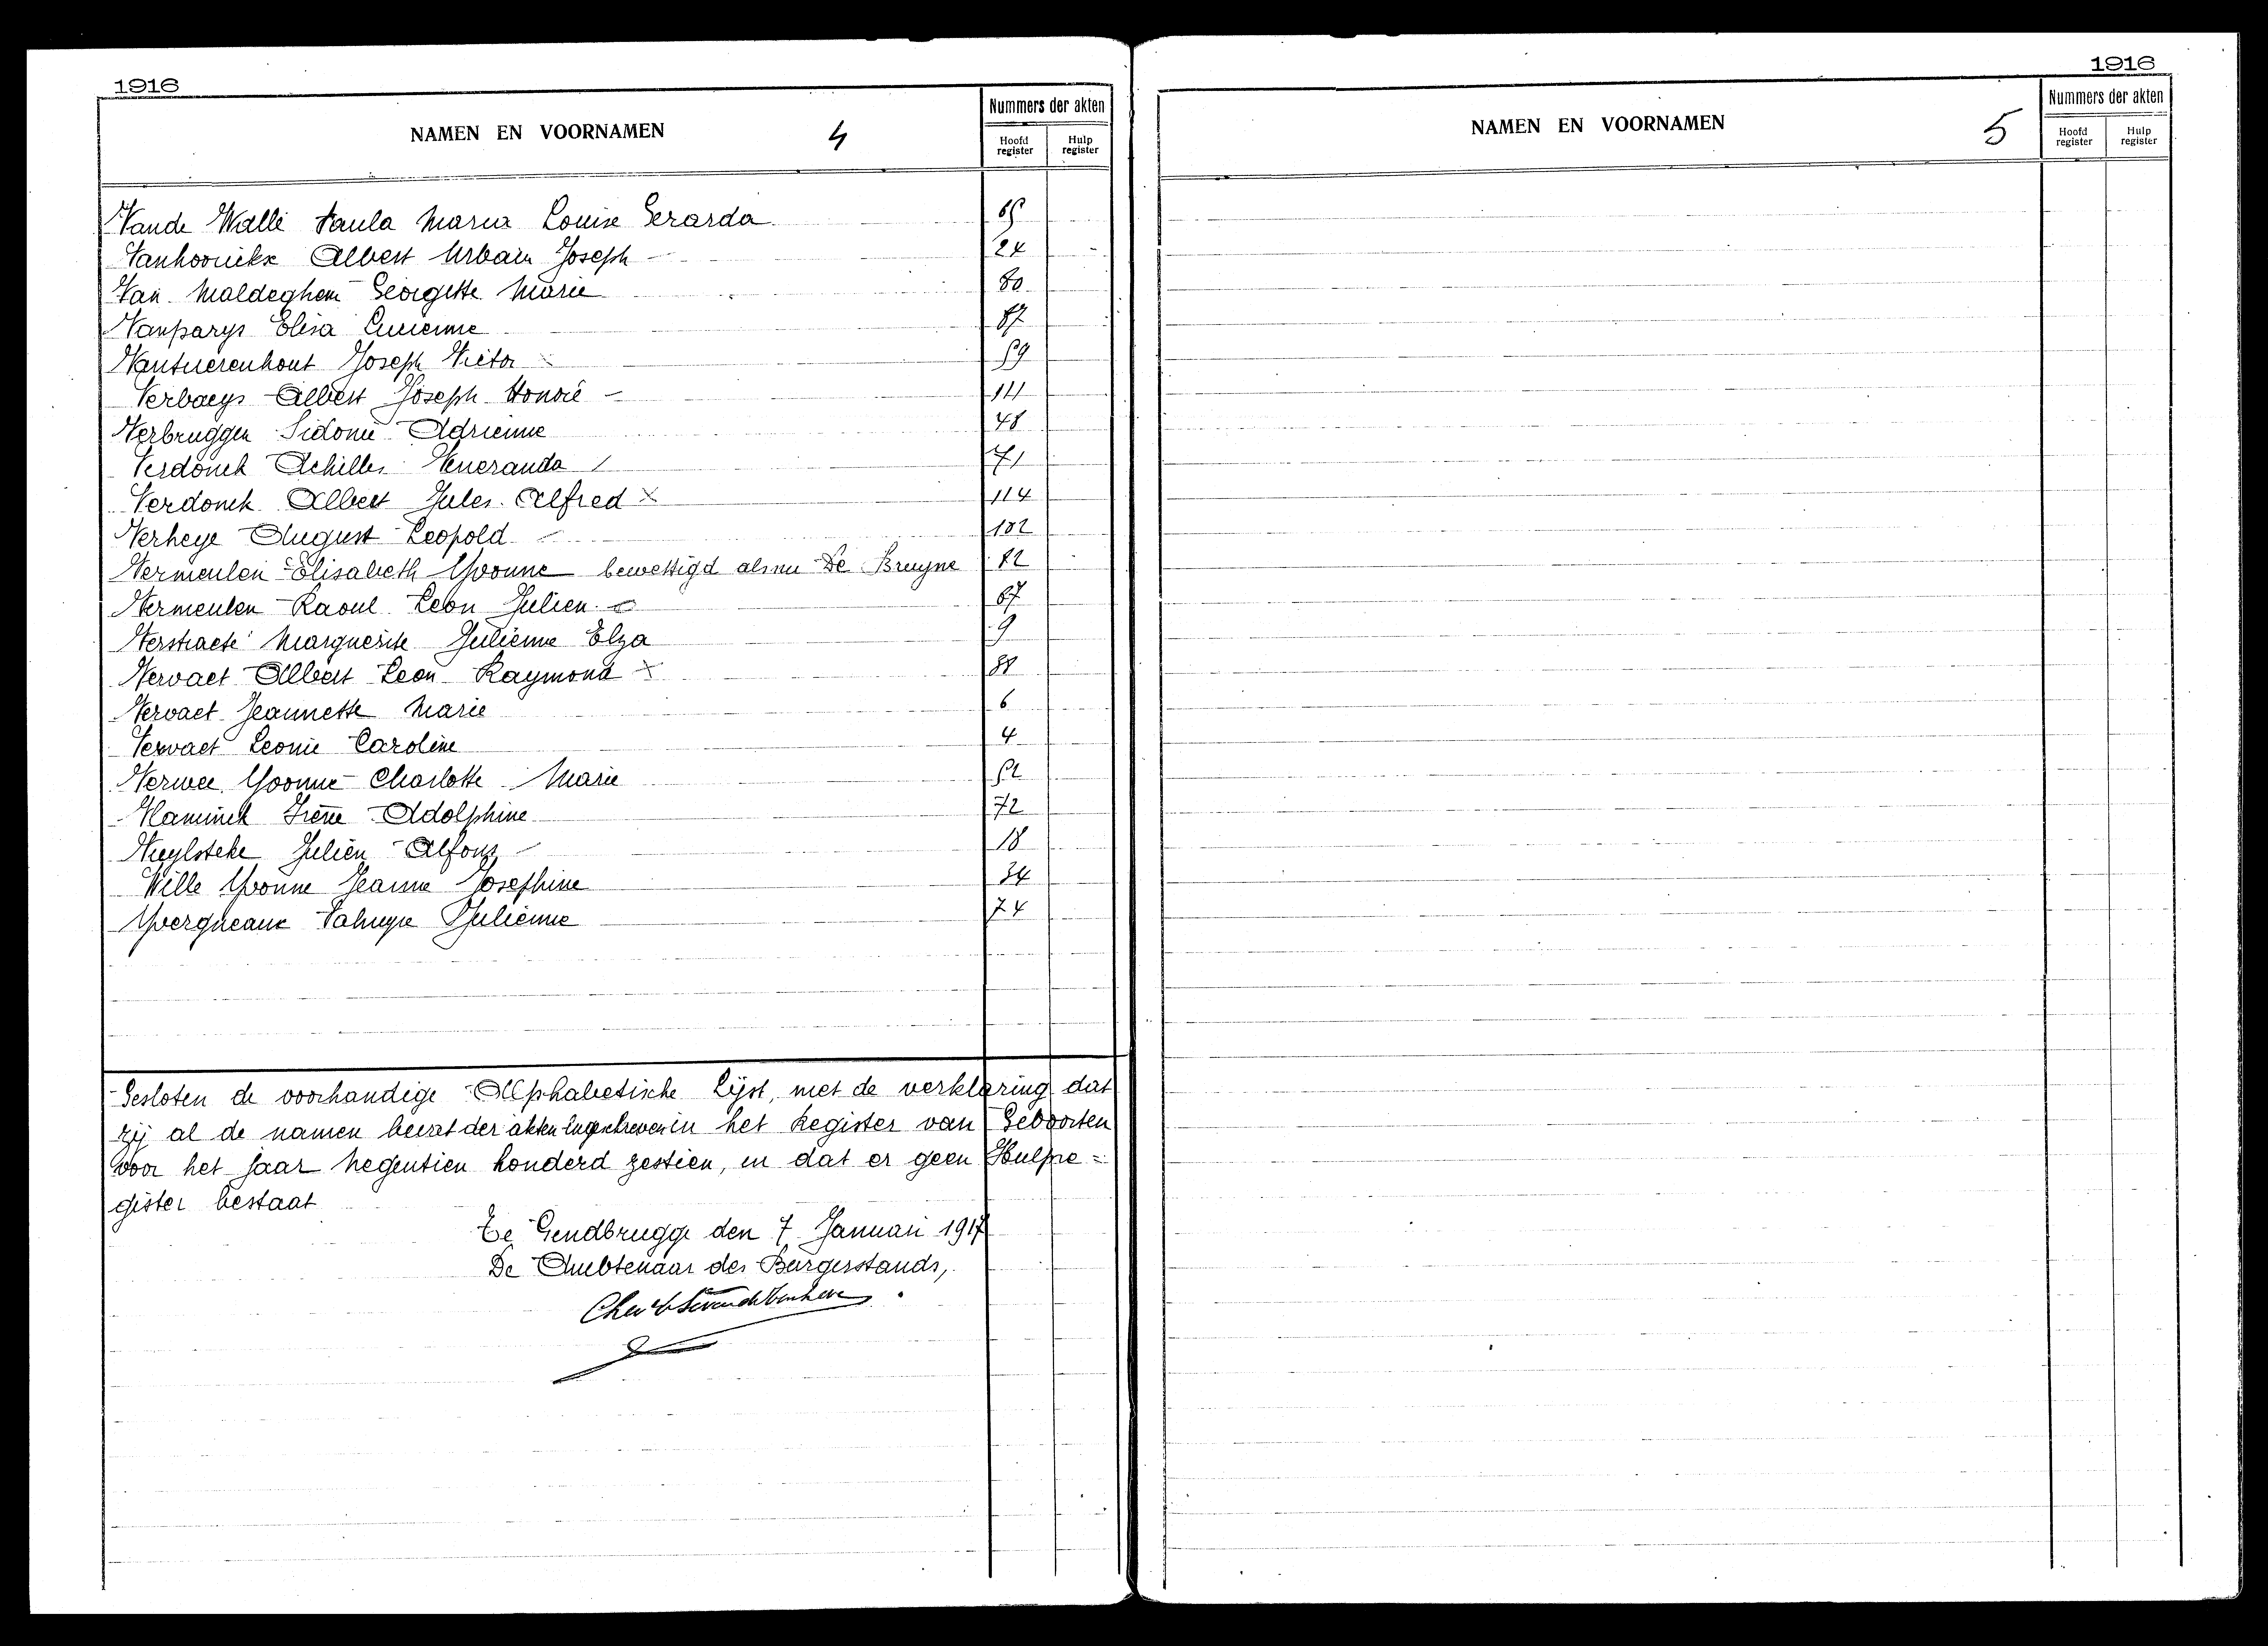 1916
NAMEN EN VOORNAMEN 4
Nummers der akten
Hoofd register
Hulp register
Vande Walle Paula Maria Louise Gerarda 65
Vanhoorickx Albert Urbain Joseph 24
Van Maldeghem Georgette Marie 80
Vanparys Elisa Lucienne
Vantuerenhout Joseph Victor 59
Verbaeys Albert Joseph Honoré 111
Verbruggen Sidonie Adrienne 48
Verdonck Achilles Veneranda 71
Verdonck Albert Jules Alfred X 114
Verheye August Leopold 102
Vermeulen Elisabeth Yvonne bewettigd als nu De Bruyne
Vermeulen Raoul Leon Julien 67
Verstraete Marguerite Julienne Elza 9
Vervaet Albert Leon Raymond X
Vervaet Jeannette Marie 6
Vervaet Leonie Caroline 4
Verwee Yvonne Charlotte Marie 52
Vlaminck Irène Adolphine 72
Vuylsteke Julien Alfons 18
Wille Yvonne Jeanne Josephine 34
Yvergneaux Julienne 74
Gesloten de voorhandige Alphabetische Lijst, met de verklaring dat
zij al de namen bevat der akten ingeschreven in het Register van Geboorten
voor het jaar negentien honderd zestien, en dat er geen Hulpre=
gister bestaat
Te Gendbrugge den 7 Januari 1917
De Ambtenaar des Burgerstands,
1916
NAMEN EN VOORNAMEN 5
Nummers der akten
Hoofd register
Hulp register